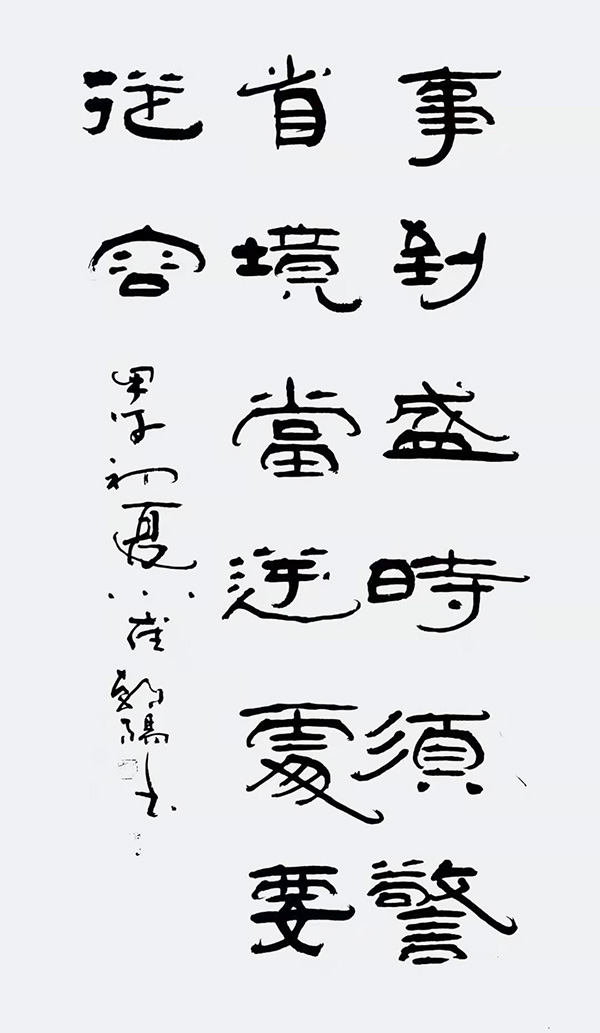 事到盛時須警
省境當逆處要
從容
甲午初夏 书